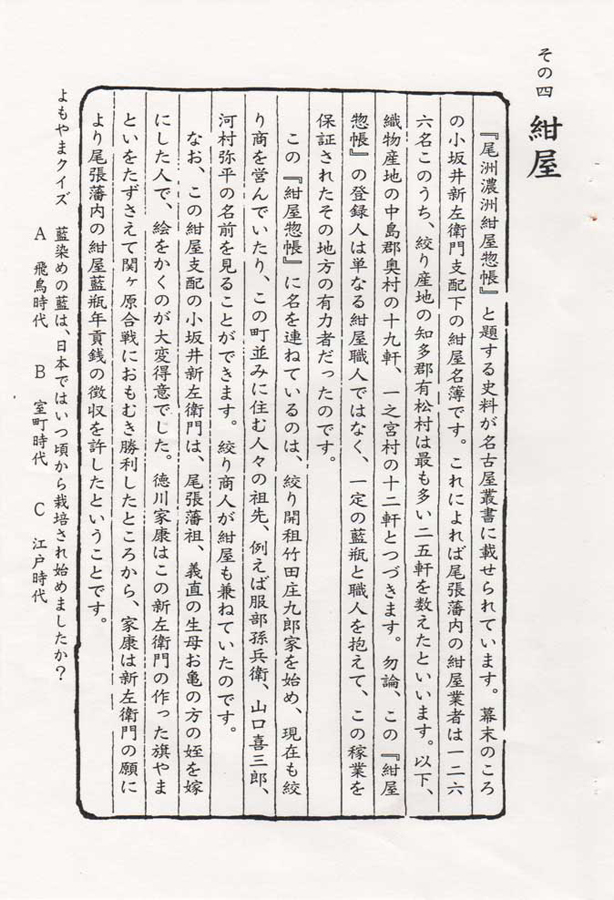 その四 紺屋
『尾洲濃洲紺屋惣帳』と題する史料が名古屋叢書に載せられています。幕末のころ
の小坂井新左衛門支配下の紺屋名簿です。これによれば尾張藩内の紺屋業者は一二六
六名このうち、絞り産地の知多郡有松村は最も多い二五軒を数えたといいます。以下、
織物産地の中島郡奥村の十九軒、一之宮村の十二軒とつづきます。勿論、この『紺屋
惣帳』の登録人は単なる紺屋職人ではなく、一定の藍瓶と職人を抱えて、この稼業を
保証されたその地方の有力者だったのです。
この『紺屋惣帳』に名を連ねているのは、絞り開祖竹田庄九郎家を始め、現在も絞
り商を営んでいたり、この町並みに住む人々の祖先、例えば服部孫兵衛、山口喜三郎、
河村弥平の名前を見ることができます。絞り商人が紺屋も兼ねていたのです。
なお、この紺屋支配の小坂井新左衛門は、尾張藩祖、義直の生母お亀の方の姪を嫁
にした人で、絵をかくのが大変得意でした。徳川家康はこの新左衛門の作った旗やま
といをたずさえて関ヶ原合戦におもむき勝利したところから、家康は新左衛門の願に
より尾張藩内の紺屋藍瓶年貢銭の徴収を許したということです。
よもやまクイズ 藍染めの藍は、日本ではいつ頃から栽培され始めましたか?
A 飛鳥時代 B 室町時代 C 江戸時代